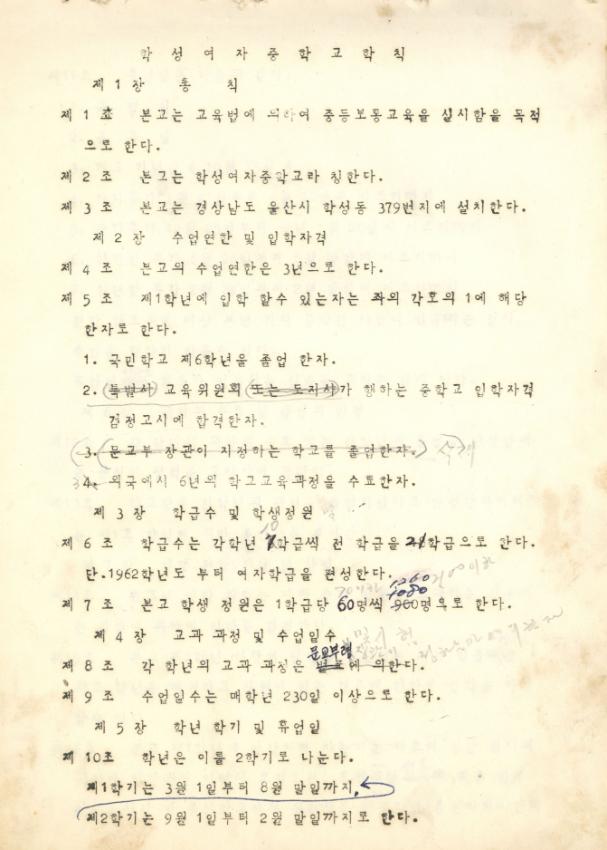 학 성 여 자 중 학 교 학 칙
제 1 장 총 칙
제 1 조 본교는 교육법에 의하여 중등보통교육을 실시함을 목적
으로 한다.
제 2 조 본교는 학성여자중학교라 칭한다.
제 3 조 본교는 경상남도 울산시 학성동 379번지에 설치한다.
제 2 장 수업연한 및 입학자격
제 4 조 본교의 수업연한은 3년으로 한다.
제 5 조 제1학년에 입학 할수 있는자는 좌의 각호의 1에 해당
한자로 한다.
1. 국민학교 제6학년을 졸업 한자.
2. (특별시) 교육위원회 (또는 도지사)가 행하는 중학교 입학자격
검정고시에 합격한자.
(3. (문교부 장관이 지정하는 학교를 졸업한자.) 삭제
3 4. 외국에서 6년의 학교교육과정을 수료한자.
제 3 장 학급수 및 학생정원
10
제 6 조 학급수는 각학년 학급씩 전 학급을 21학급으로 한다.
단.1962학년도 부터 여자학급을 편성한다.
1260
1080
제 7 조 본교 학생 정원은 1학급당 60명씩 900명으로 한다.
제 4 장 교과 과정 및 수업일수
문교부령
제 8 조 각 학년의 교과 과정은 에 의한다.
제 9 조 수업일수는 매학년 230일 이상으로 한다.
제 5 장 학년 학기 및 휴업일
제 10조 학년은 이를 2학기로 나눈다.
제1학기는 3월 1일부터 8월 말일까지,
제2학기는 9월 1일부터 2월 말일까지로 한다.